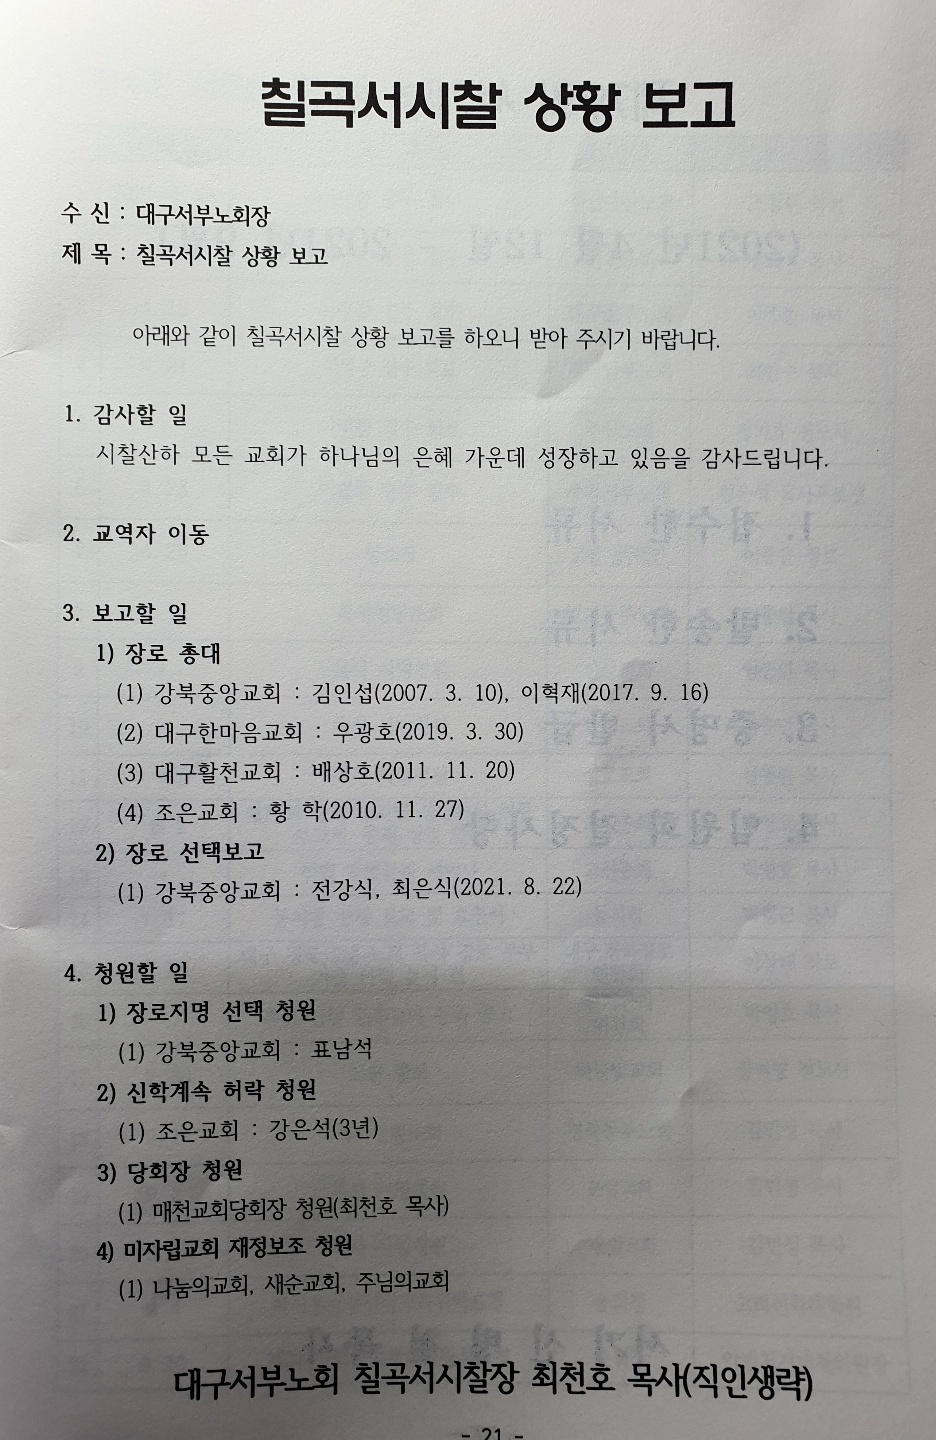 칠곡서시찰 상황 보고
수 신 : 대구서부노회장
제 목 : 칠곡서시찰 상황 보고
아래와 같이 칠곡서시찰 상황 보고를 하오니 받아 주시기 바랍니다.
1. 감사할 일
시찰산하 모든 교회가 하나님의 은혜 가운데 성장하고 있음을 감사드립니다.
2. 교역자 이동
3. 보고할 일
1) 장로 총대
(1) 강북중앙교회 : 김인섭(2007. 3. 10), 이혁재(2017. 9. 16)
(2) 대구한마음교회 : 우광호(2019. 3. 30)
(3) 대구활천교회 : 배상호(2011. 11. 20)
(4) 조은교회 : 황 학(2010. 11. 27)
2) 장로 선택보고
(1) 강북중앙교회 : 전강식, 최은식(2021. 8. 22)
4. 청원할 일
1) 장로지명 선택 청원
(1) 강북중앙교회 : 표남석
2) 신학계속 허락 청원
(1) 조은교회 : 강은석(3년)
3) 당회장 청원
(1) 매천교회당회장 청원(최천호 목사)
4) 미자립교회 재정보조 청원
(1) 나눔의교회, 새순교회, 주님의교회
대구서부노회 칠곡서시찰장 최천호 목사(직인생략)
- 21 -